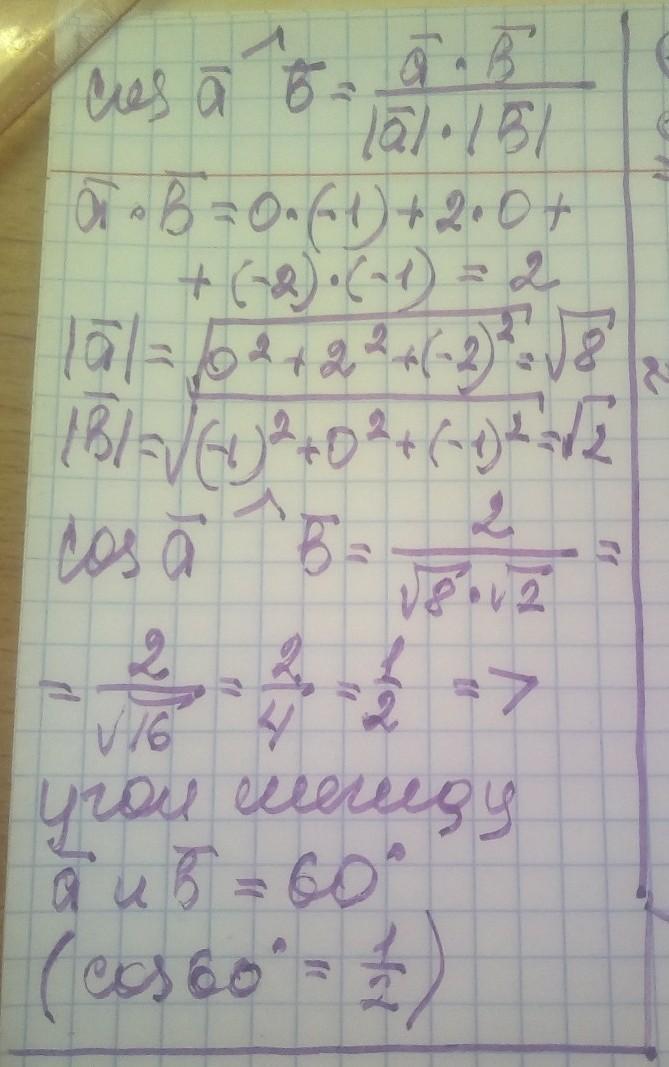 cos a̅ ^ b̅ = a̅ · b̅ / |a̅| · |b̅|
a̅ · b̅ = 0·(-1) + 2·0 +
+ (-2)·(-1) = 2
|a̅| = √(0² + 2² + (-2)²) = √8
|b̅| = √((-1)² + 0² + (-1)²) = √2
cos a̅ ^ b̅ = 2 / √8·√2 =
= 2/√16 = 2/4 = 1/2 =>
угол между
a̅ и b̅ = 60°
(cos 60° = 1/2)